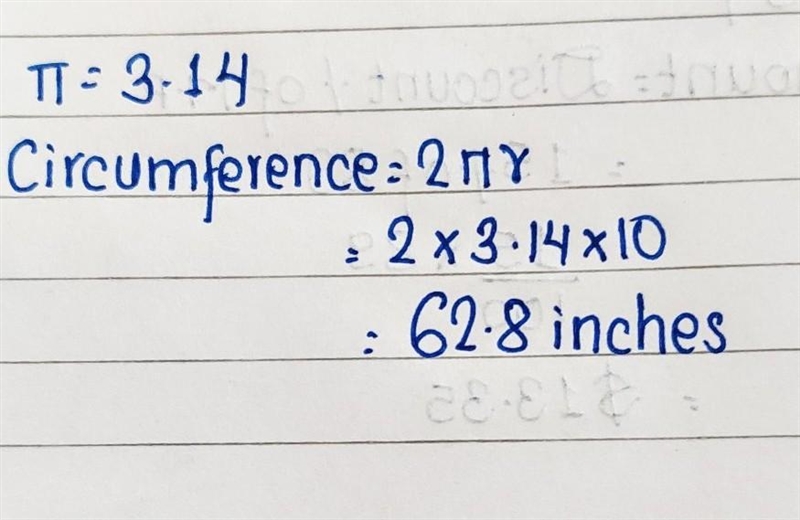 π = 3.14
Circumference = 2πr
= 2 × 3.14 × 10
= 62.8 inches